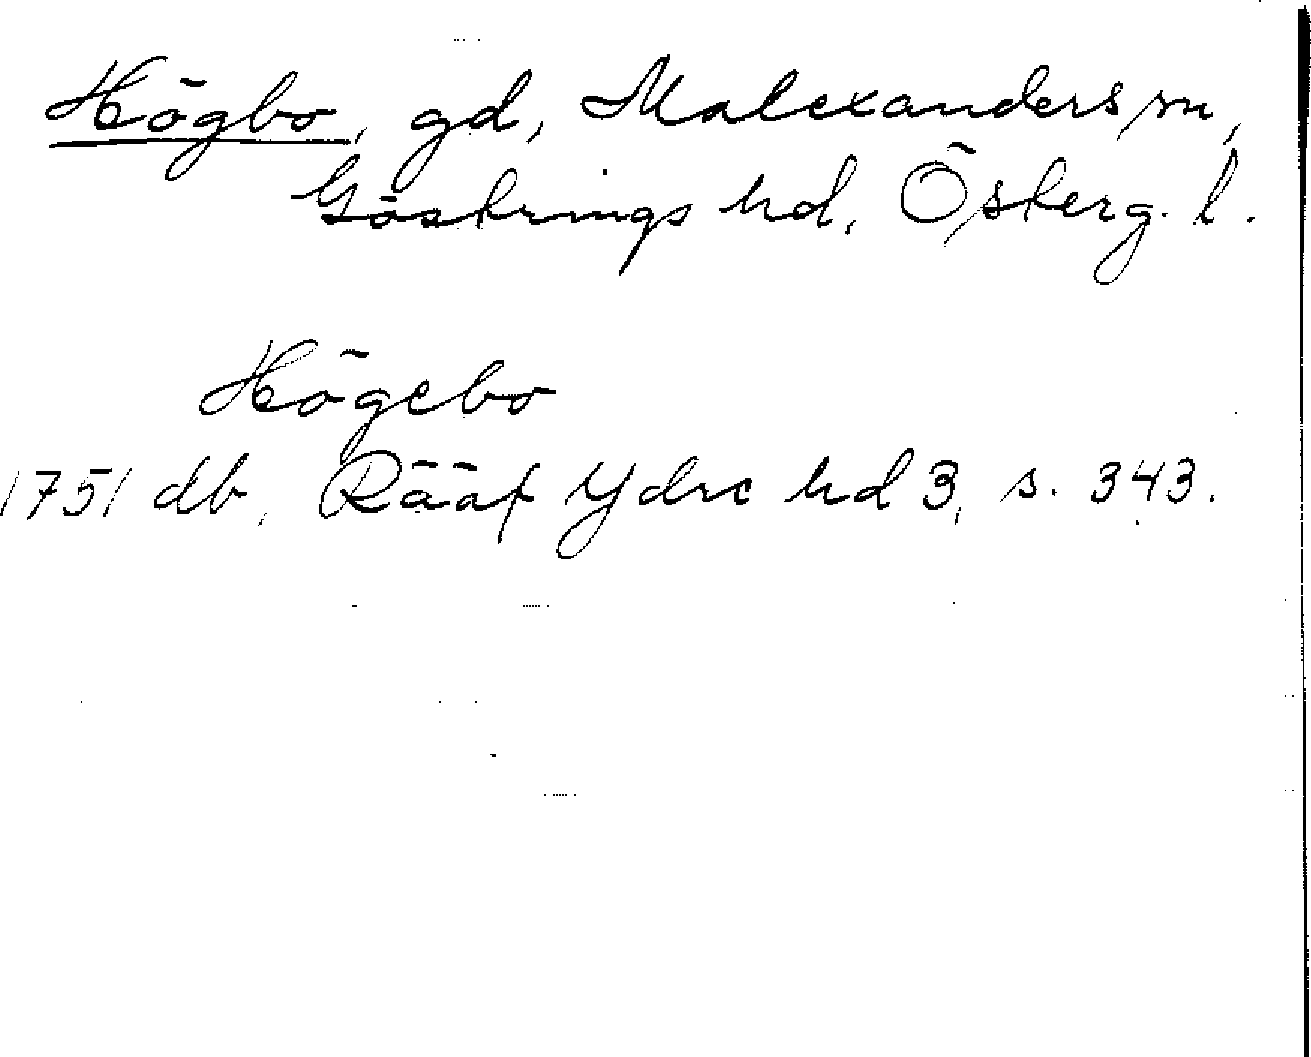 Högbo, gd, Malexanders sn,
Göstrings hd, Österg. l.
Högebo
1751 db, Rääf Ydre hd 3, s. 343.